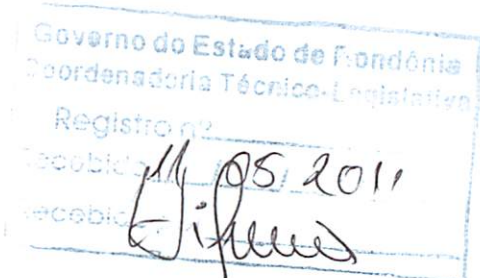 Governo do Estado de Rondônia
Coordenadoria Técnico-Legislativa
Registro nº
Recebido 11 05 2011
Recebido